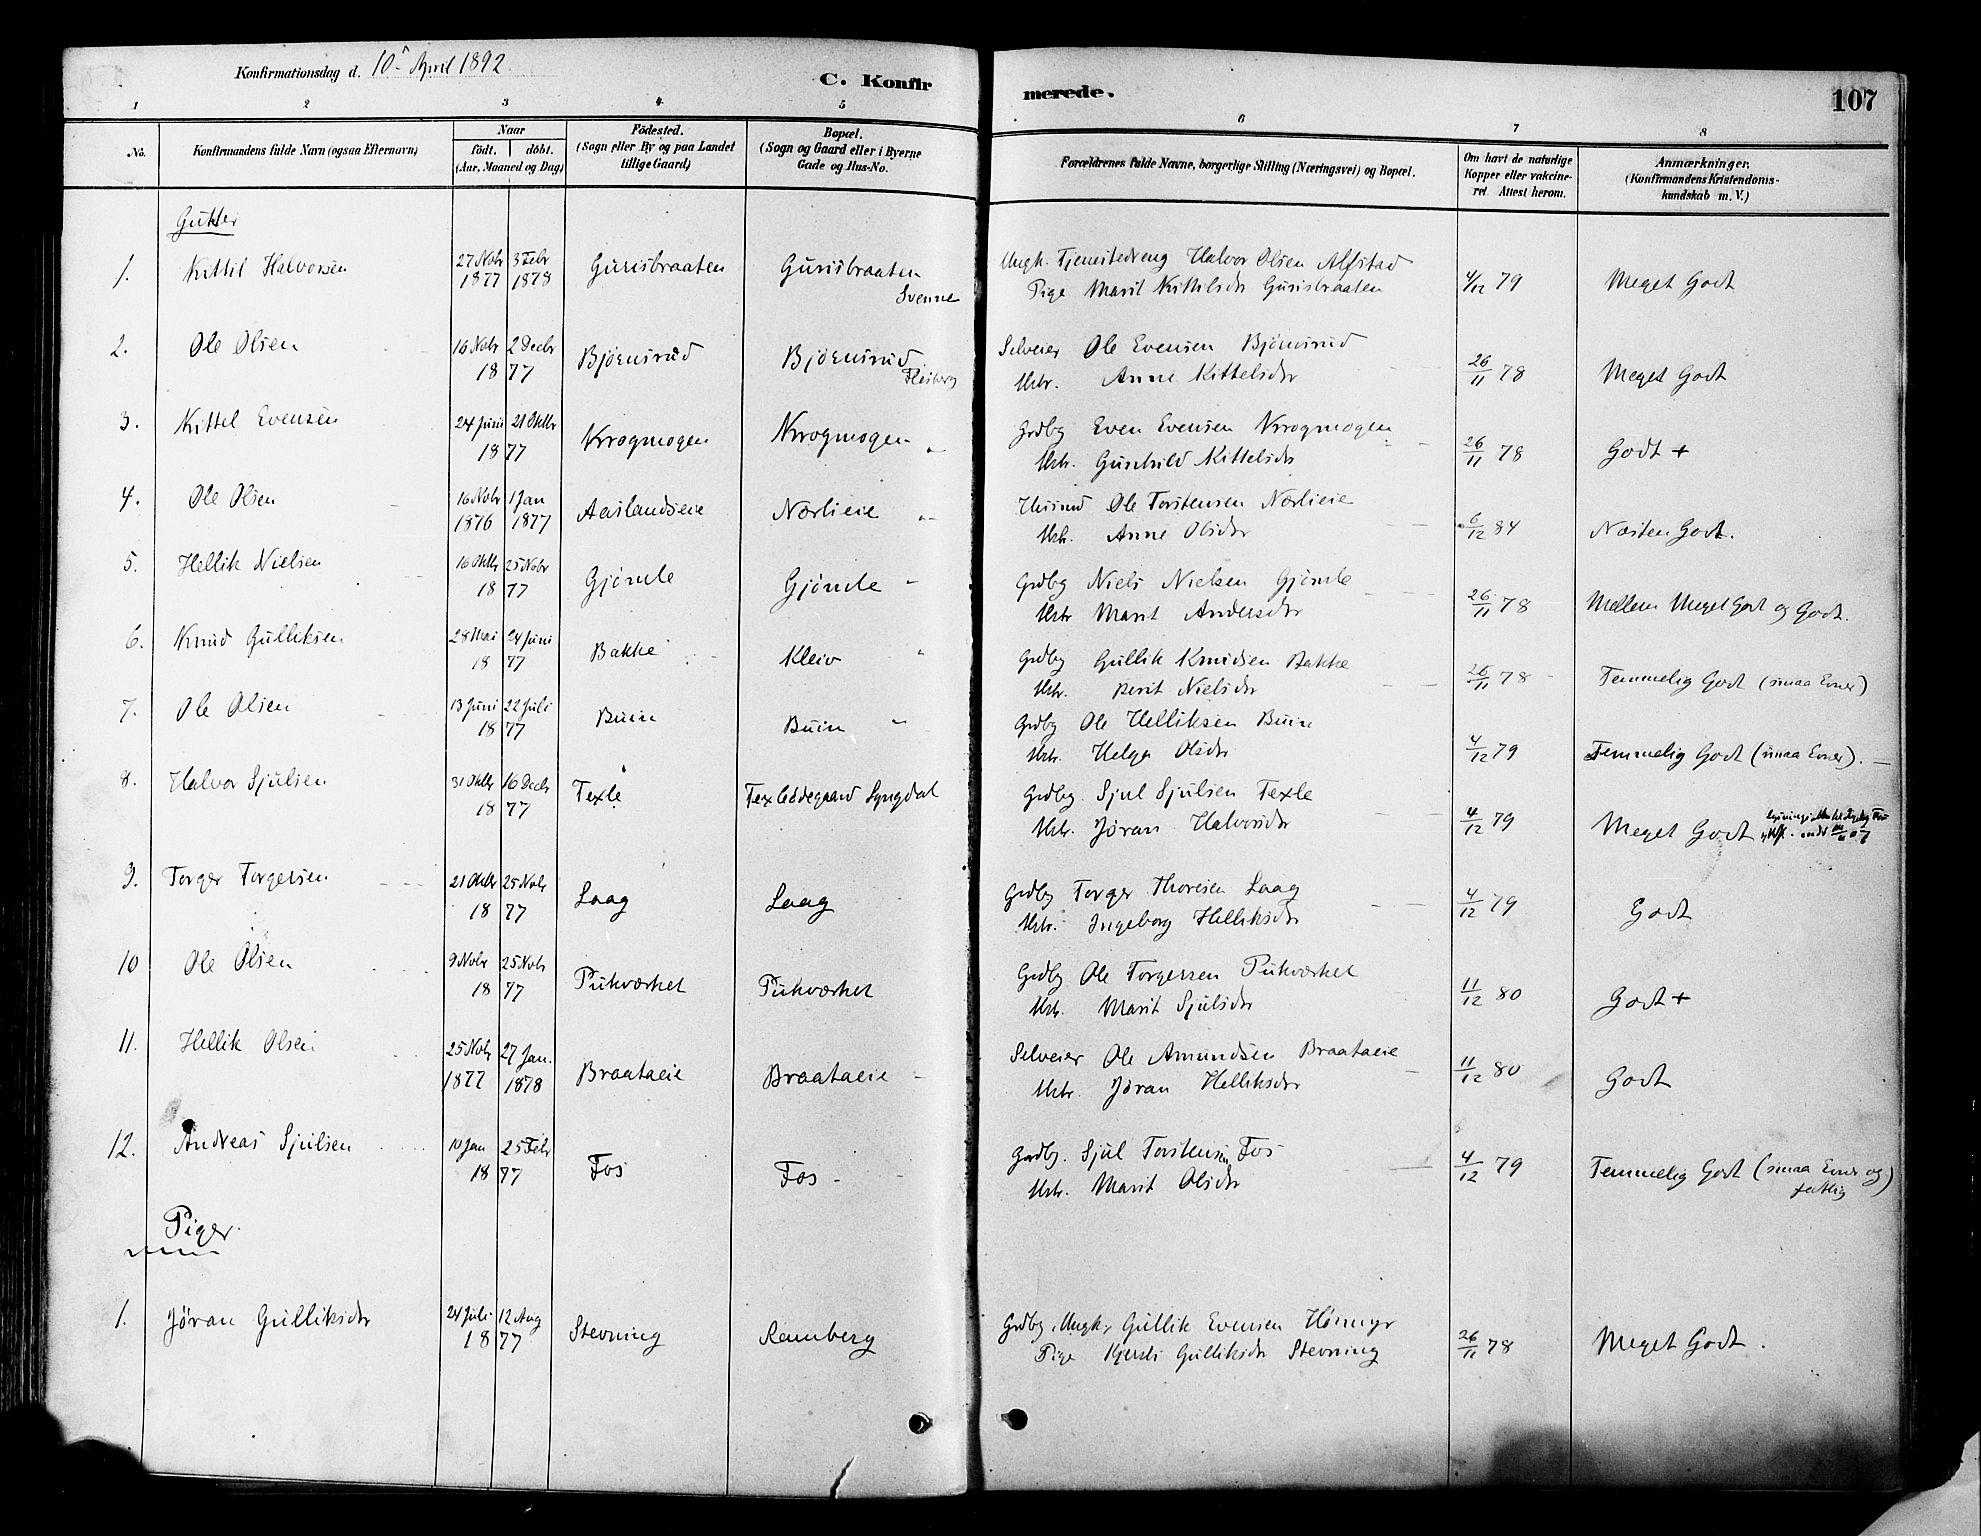 Konfirmationsdag d. 10. April 1892.
C. Konfirmerede.
107
1 2 3 4 5 6 7 8
No. Konfirmandens fulde Navn (ogsaa Efternavn) Naar født. døbt. (Aar, Maaned og Dag) Födested. (Sogn eller By og paa Landet tillige Gaard) Bopæl. (Sogn og Gaard eller i Byerne Gade og Hus-No. Forældrenes fulde Navne, borgerlige Stilling (Næringsvei) og Bopæl. Om havt de naturlige Kopper eller vakcineret Attest herom. Anmærkninger. (Konfirmandens Kristendomskundskab m. V.)
Gutter
1. Kittil Halvorsen 27 Nobr 1877 3 Febr 1878 Gurisbraaten Gurisbraaten Svenne Ungk. Tjenestedreng Halvor Olsen Alfstad
Pige Marit Kittilsdr Gurisbraaten 4/12 79 Meget Godt
2. Ole Olsen 16 Nobr 2 Decbr 1877 Bjørnsrud Bjørnsrud Flesberg Selveier Ole Evensen Bjørnsrud
Hstr. Anne Kittelsdr 26/11 78 Meget Godt
3. Kittel Evensen 24 Juni 21 Oktbr 1877 Krogmogen Krogmogen " Grdbg Even Evensen Krogmogen
Hstr. Gunhild Kittelsdr 26/11 78 Godt +
4. Ole Olsen 16 Nobr 1876 1 Jan 1877 Aaslandseie Nørlieie " Husmd Ole Torstensen Nørlieie
Hstr. Anne Olsdr 6/12 84 Næsten Godt.
5. Hellik Nielsen 16 Oktbr 25 Nobr 1877 Gjømle Gjømle " Grdbg Niels Nielsen Gjømle
Hstr Marit Andersdr 26/11 78 Mellem Meget Godt og Godt.
6. Knud Gulliksen 28 Mai 24 Juni 1877 Bakke Kleiv " Grdbg Gullik Knudsen Bakke
Hstr. Berit Nielsdr 26/11 78 Temmelig Godt (smaa Evner)
7. Ole Olsen 13 Juni 22 Juli 1877 Buin Buin " Grdbg Ole Helliksen Buin
Hstr. Helga Olsdr 4/12 79 Temmelig Godt (smaa Evner).
8. Halvor Sjulsen 31 Oktbr 16 Decbr 1877 Texle Texleødegaard Lyngdal Grdbg. Sjul Sjulsen Texle
Hstr. Jøran Halvorsdr 4/12 79 Meget Godt
9. Torger Torgersen 21 Oktbr 25 Nobr 1877 Laag Laag Grdbg Torger Thoresen Laag
Hstr. Ingeborg Helliksdr 4/12 79 Godt
10 Ole Olsen 9 Nobr 25 Nobr 1877 Pukværket Pukværket Grdbg Ole Torgersen Pukværket
Hstr. Marit Sjulsdr 11/12 80 Godt +
11. Hellik Olsen 25 Nobr 1877 27 Jan. 1878 Braataeie Braataeie Selveier Ole Amundsen Braataeie
Hstr. Jøran Helliksdr 11/12 80 Godt
12. Andreas Sjulsen 10 Jan 25 Febr 1877 Fos Fos Grdbg. Sjul Torstensen Fos
Hstr. Marit Olsdr 4/12 79 Temmelig Godt (smaa Evner og
Piger
1. Jøran Gulliksdr 24 Juli 12 Aug 1877 Stevning Ramberg Grdbg. Ungk. Gullik Evensen Hømyr
Pige Kjersti Gulliksdr Stevning 26/11 78 Meget Godt.